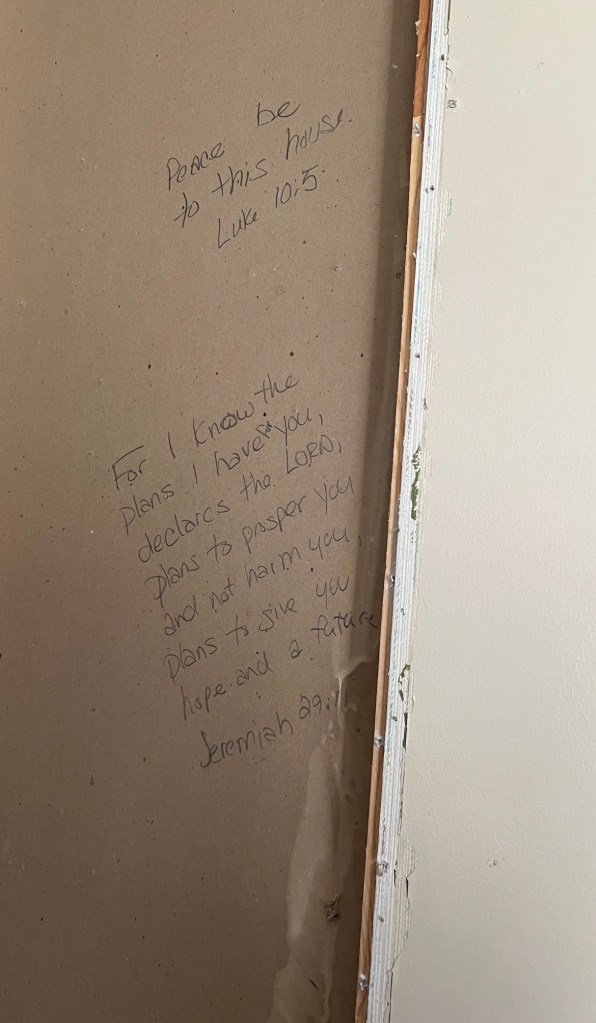 Peace be
to this house.
Luke 10:5.
For I know the
plans I have for you,
declares the LORD,
plans to prosper you
and not harm you,
plans to give you
hope and a future
Jeremiah 29:11